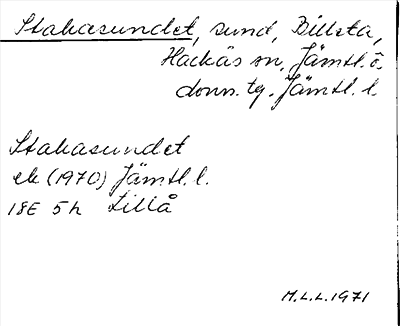 Stakasundet, sund, Billsta,
Hackås sn. Jämtl. ö.
doms. tg. Jämtl. l.
Stakasundet
ek (1970) Jämtl. l.
18E 5h Lillå
M.L.L. 1971